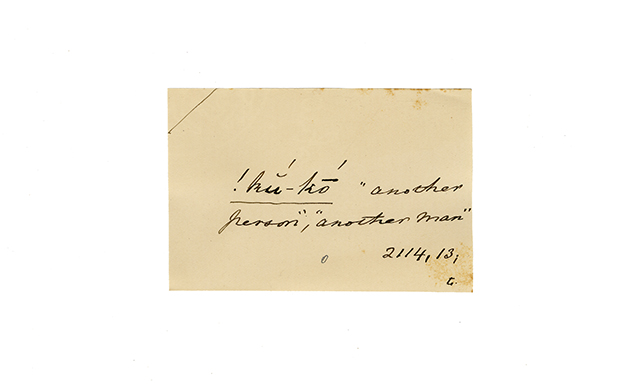 !kŭ́-kṓ "another
person", "another man"
2114, 13,
G.